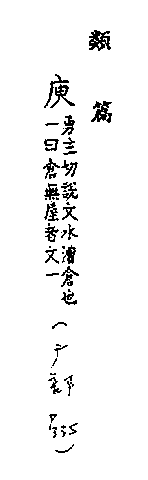 類篇
庾
勇主切說文水漕倉也
一曰倉無屋者文一
(广部
P335)